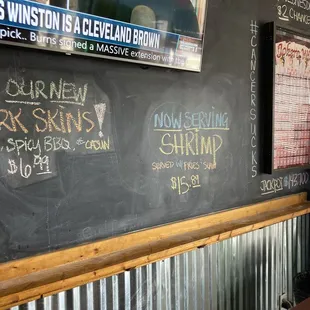 S WINSTON IS A CLEVELAND BROWN
PICK.. Burns signed a MASSIVE extension
$2 CHANCE
OUR NEW
RK SKINS!
SPICY BBQ, CAJUN
$6.99
NOW SERVING
SHRIMP
SERVED W/ FRIES
$15.
#CANCERSUCKS